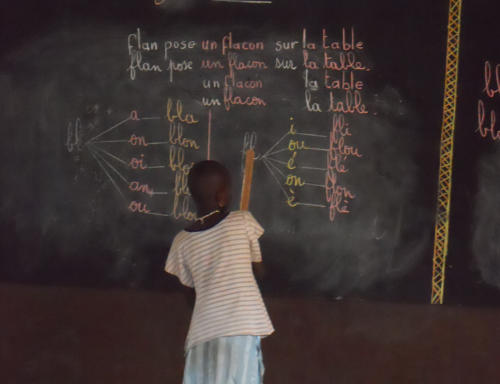 flan pose un flacon sur la table
flan pose un flacon sur la table.
un flacon la table
un flacon la table.
bl
a bla
on blon
oi
an
ou
fl
i fli
ou flou
é flé
on flon
è flè